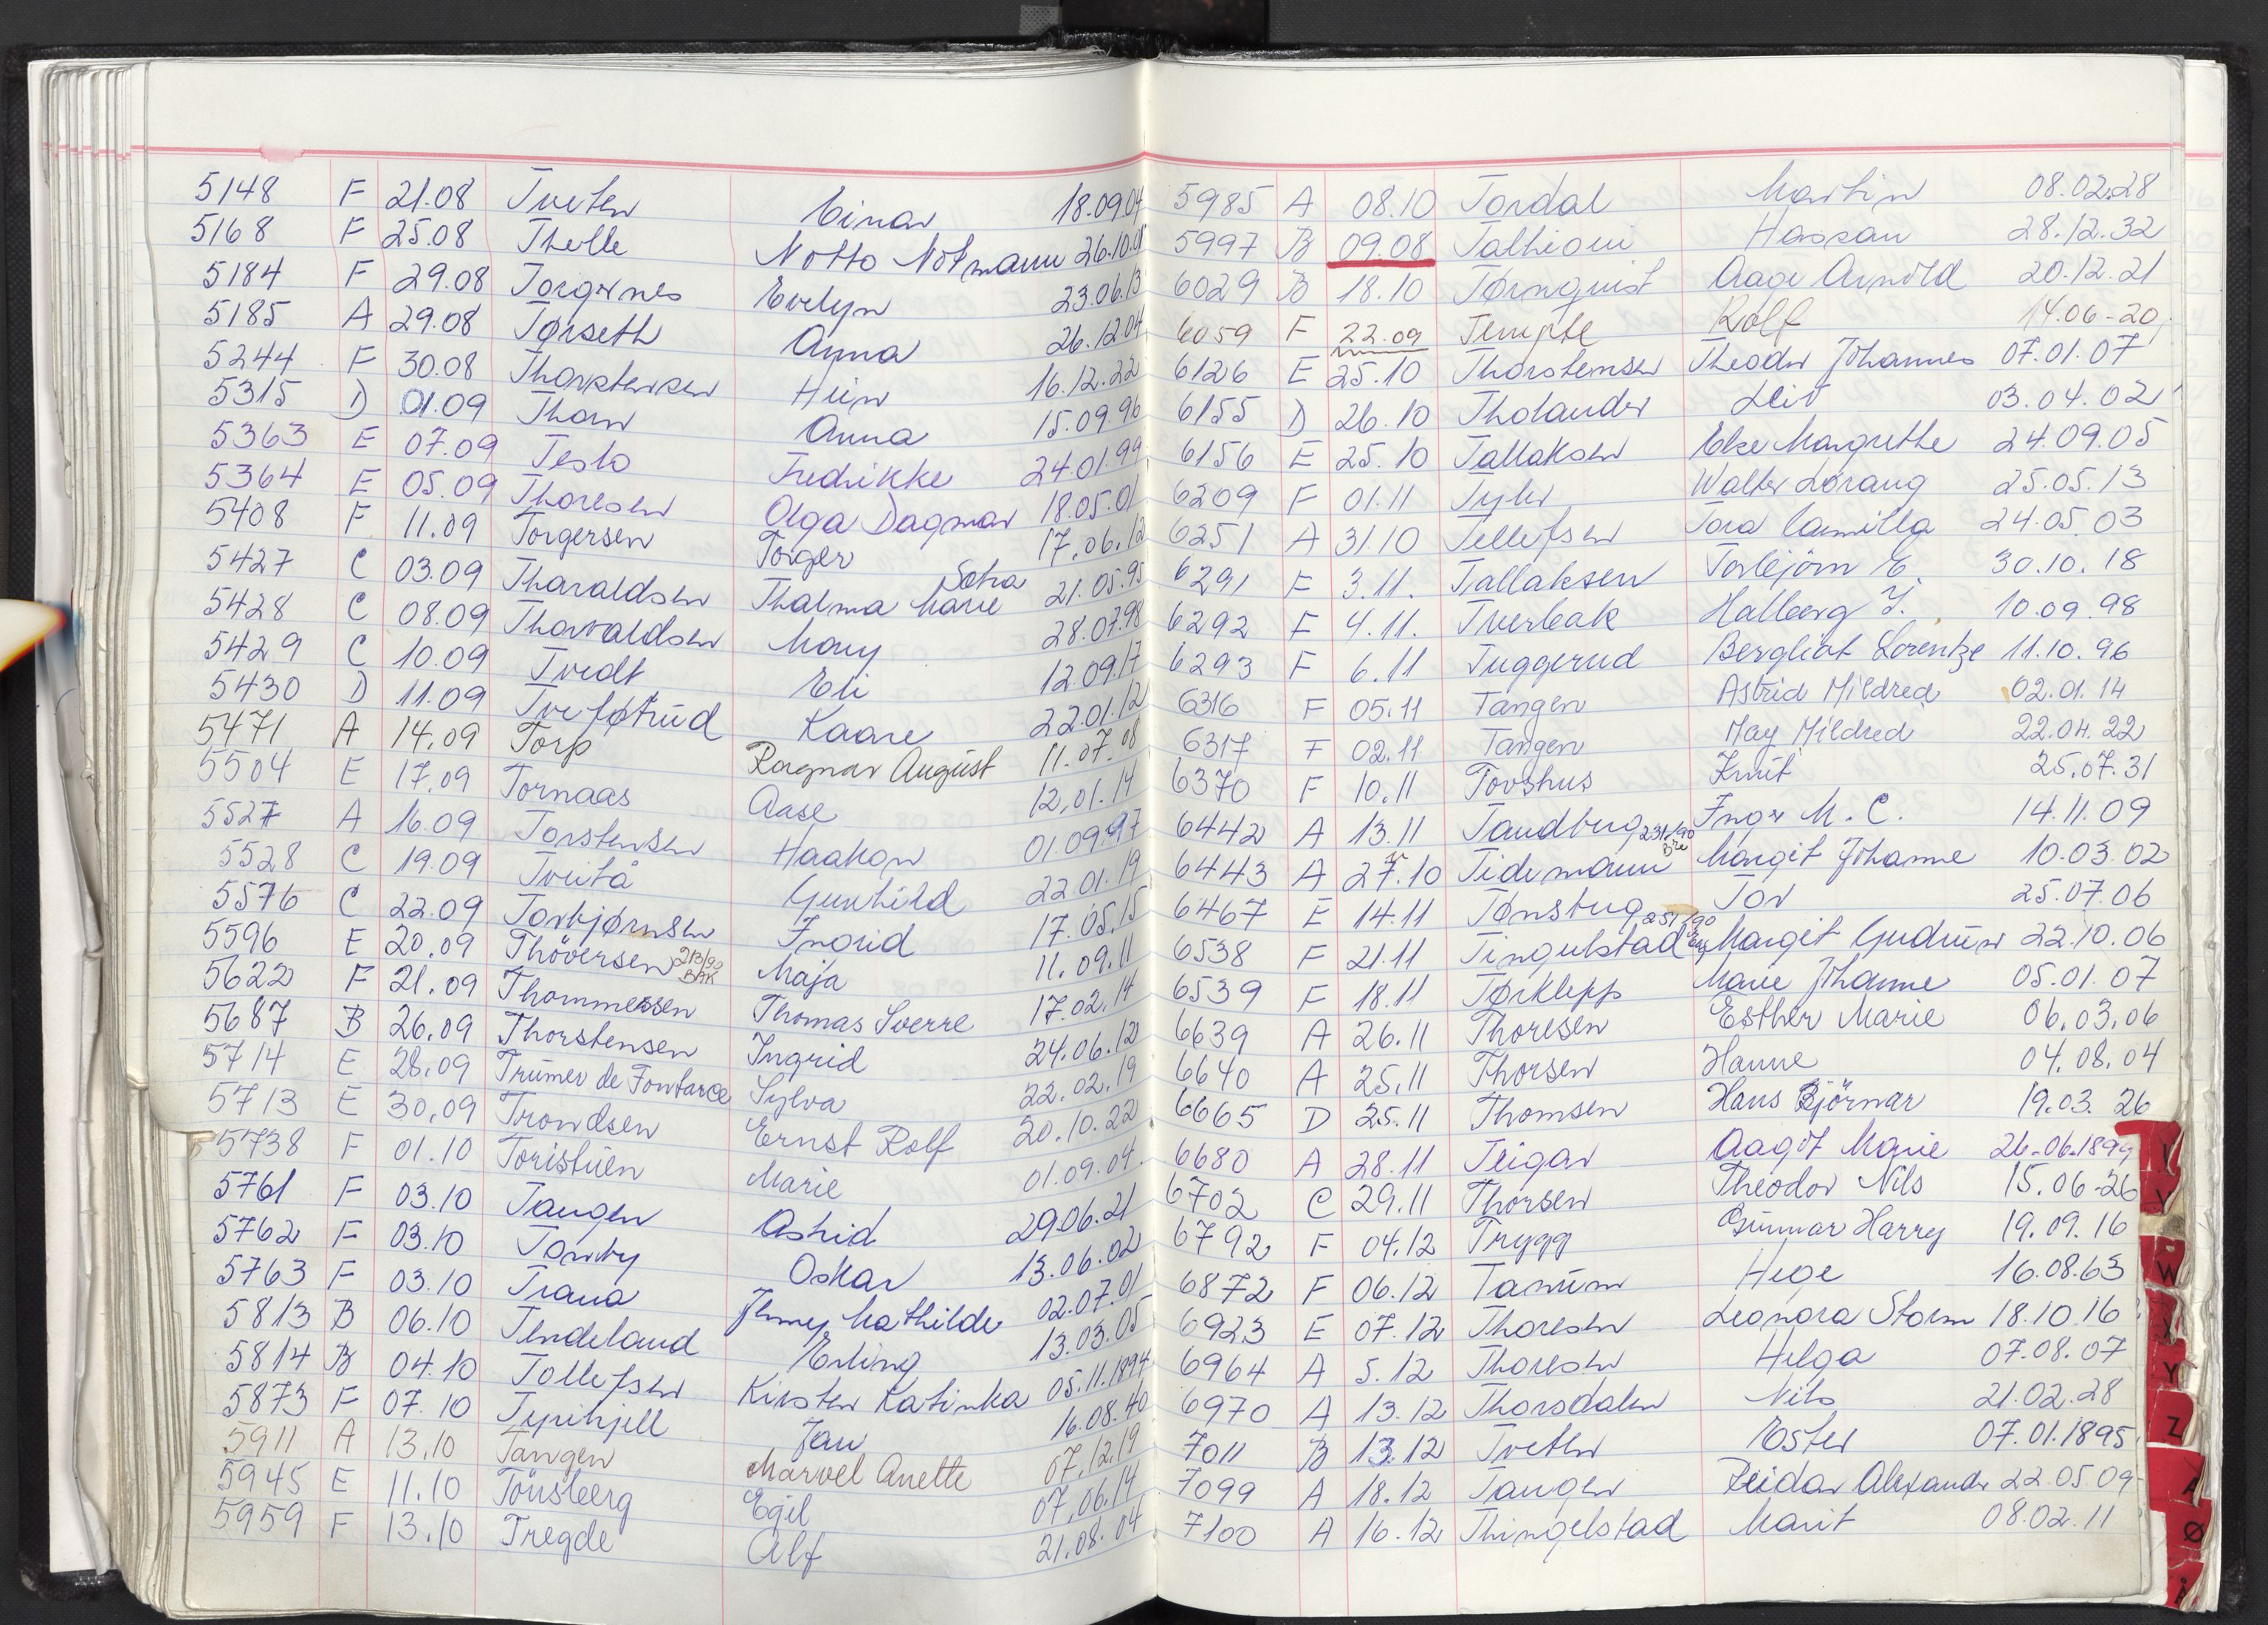 5148 F 21.08 Tveten Einar 18.09.04
5168 F 25.08 Thelle Notto Notmann 26.10.01
5184 F 29.08 Torgernes Evelyn 23.06.13
5185 A 29.08 Tørseth Anna 26.12.04
5244 F 30.08 Thorstensen Hein 16.12.22
5315 D 01.09 Thorn Anna 15.09.96
5363 E 07.09 Teslo Fredrikke 24.01.99
5364 E 05.09 Thoresen Olga Dagmar 18.05.01
5408 F 11.09 Torgersen Torger 17.06.12
5427 C 03.09 Tharaldsen Thalma Marie Sofra 21.05.95
5428 C 08.09 Thorvaldsen Mary 28.07.98
5429 C 10.09 Tvedt Eli 12.09.17
5430 D 11.09 Tveføtrud Kaare 22.01.12
5471 A 14.09 Torp Ragnar August 11.07.08
5504 E 17.09 Tornaas Aase 12.01.14
5527 A 16.09 Torstensen Haakon 01.09.97
5528 C 19.09 Tveitå Gunhild 22.01.19
5576 C 22.09 Torbjørnsen Ingrid 17.05.15
5596 E 20.09 Thöversen 213/90 BAK Maja 11.09.11
5622 F 21.09 Thommesen Thomas Sverre 17.02.14
5687 B 26.09 Thorstensen Ingrid 24.06.12
5714 E 28.09 Trumer de Fontarce Sylva 22.02.19
5713 E 30.09 Trondsen Ernst Rolf 20.10.22
5738 F 01.10 Toristuen Marie 01.09.04
5761 F 03.10 Tangen Astrid 29.06.21
5762 F 03.10 Tomby Oskar 13.06.02
5763 F 03.10 Trana Jenny Mathilde 02.07.01
5813 B 06.10 Tendeland Erling 13.03.05
5814 B 04.10 Tollefsen Kirsten Katinka 05.11.1894
5873 F 07.10 Typihjell Jan 16.08.40
5911 A 13.10 Tangen Marvel Anette 07.12.19
5945 E 11.10 Tönsberg Egil 07.06.14
5959 F 13.10 Tregde Alf 21.08.04
5985 A 08.10 Tordal Martin 08.02.28
5997 B 09.08 Talhioui Hassan 28.12.32
6029 B 18.10 Tørnquist Aage Arnold 20.12.21
6059 F 22.09 Tempte Rolf 14.06-20
6126 E 25.10 Thorstensen Theodor Johannes 07.01.07
6155 D 26.10 Tholander Leiv 03.04.02
6156 E 25.10 Tallaksen Else Margrethe 24.09.05
6209 F 01.11 Tyler Walter Lorang 25.05.13
6251 A 31.10 Tellefsen Tora Camilla 24.05.03
6291 F 3.11. Tallaksen Torbjörn E. 30.10.18
6292 F 4.11. Tverbak Halberg Y. 10.09.98
6293 F 6.11 Tuggerud Bergliot Lorentze 11.10.96
6316 F 05.11 Tangen Astrid Mildred 02.01.14
6317 F 02.11 Tangen May Mildred 22.04.22
6370 F 10.11 Tovshus Knut 25.07.31
6442 A 13.11 Tandberg 231/90 Inger M. C. 14.11.09
6443 A 27.10 Tidemann Bre Margit Johanne 10.03.02
6467 E 14.11 Tønsberg 251/90 Tor 25.07.06
6538 F 21.11 Tingulstad Margit Gudrun 22.10.06
6539 F 18.11 Tørklepp Marie Johanne 05.01.07
6639 A 26.11 Thoresen Esther Marie 06.03.06
6640 A 25.11 Thorsen Hanne 04.08.04
6665 D 25.11 Thomsen Hans Björnar 19.03.26
6680 A 28.11 Teigar Aagot Marie 26.06.1899
6702 C 29.11 Thorsen Theodor Nils 15.06-26
6792 F 04.12 Trygg Gunnar Harry 19.09.16
6872 F 06.12 Tanum Hege 16.08.63
6923 E 07.12 Thoresen Leonora Storm 18.10.16
6964 A 5.12 Thoresen Helga 07.08.07
6970 A 13.12 Thorsdalen Nils 21.02.28
7011 B 13.12 Tveten Ester 07.01.1895
7099 A 18.12 Tangen Reidar Alexander 22.05.09
7100 A 16.12 Thingelstad Marit 08.02.11
V
W
Y
Z
Ø
Å